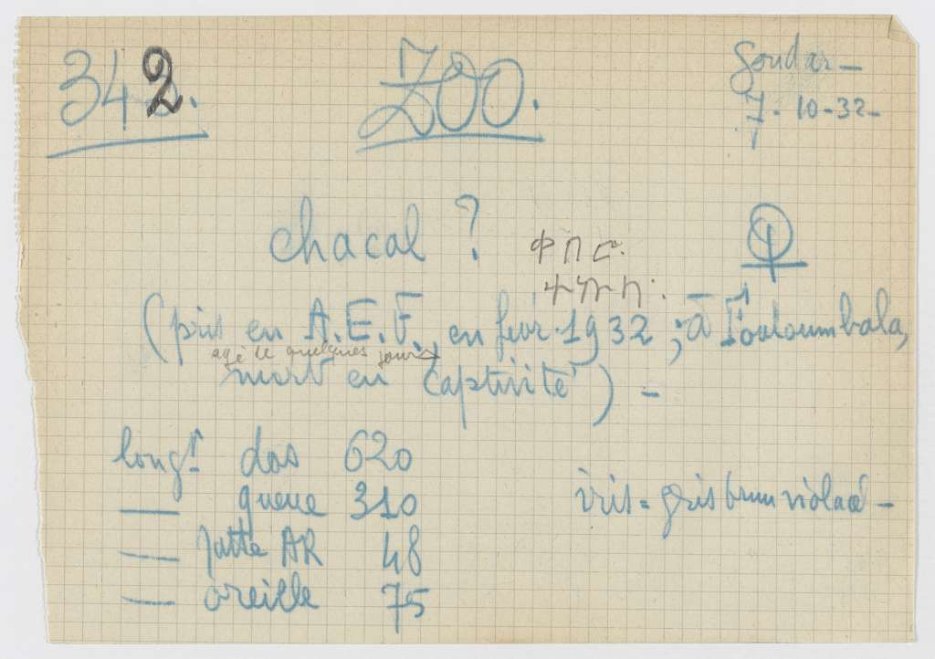 342. ZOO. Gondar -
7-10-32-
chacal ? ♀
ቀበሮ
(pris en A.E.F., en fevr. 1932 ; à Touloumbala,
agé de quelques jours
mort en captivité) -
longt dos 620
— queue 310
iris = gris brun violacé -
— patte AR 48
— oreille 75